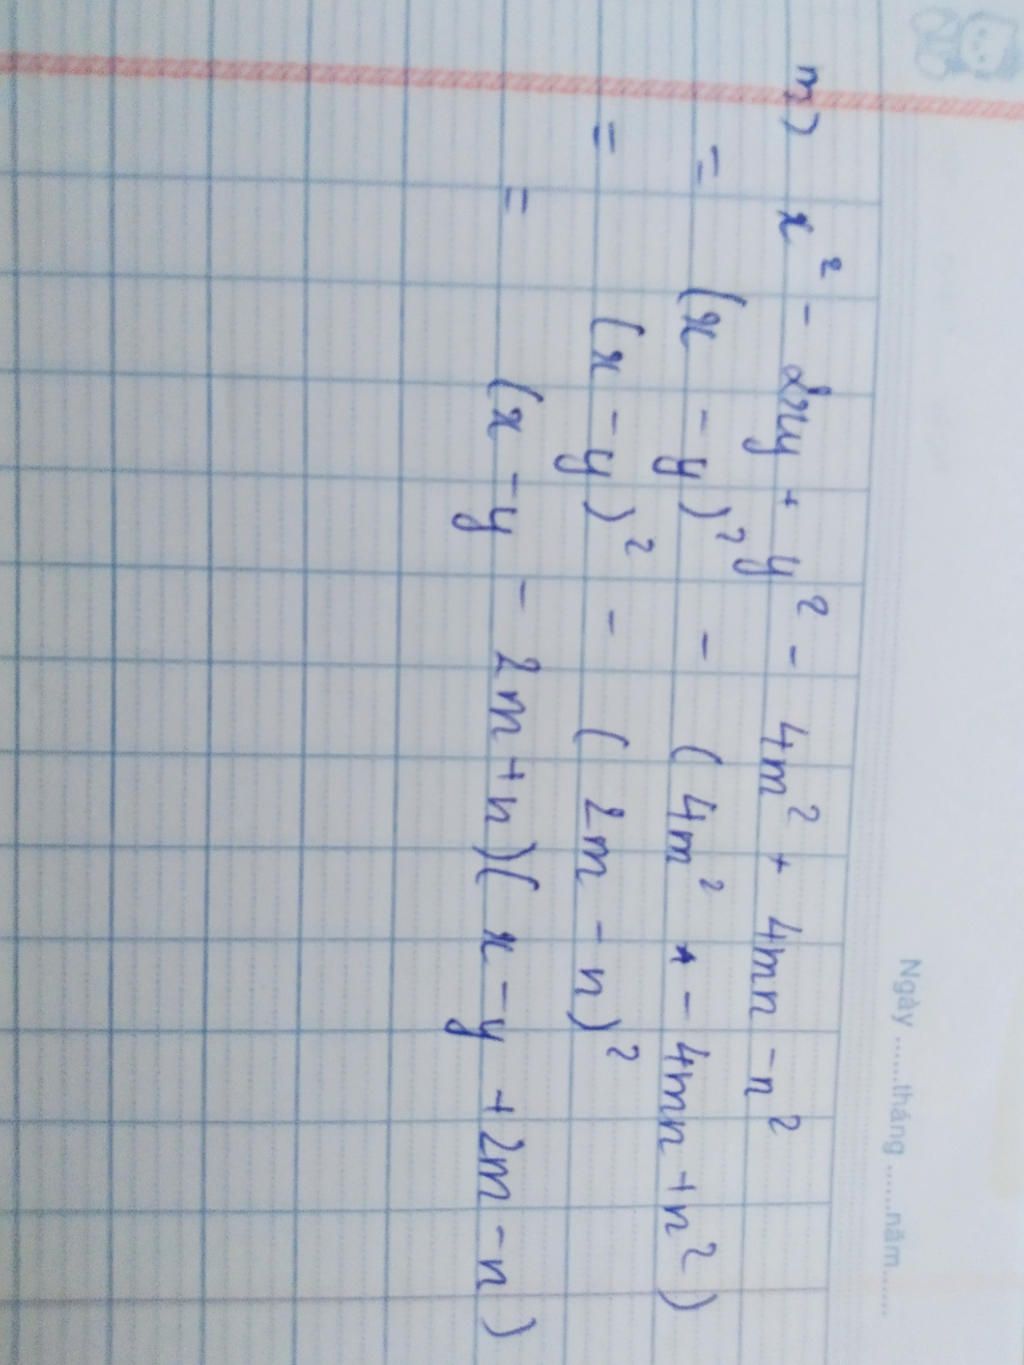 Ngày ......tháng ......năm.......
m) x² - 2xy + y² - 4m² + 4mn - n²
= (x - y)² - (4m² - 4mn + n²)
= (x - y)² - (2m - n)²
= (x - y - 2m + n)(x - y + 2m - n)